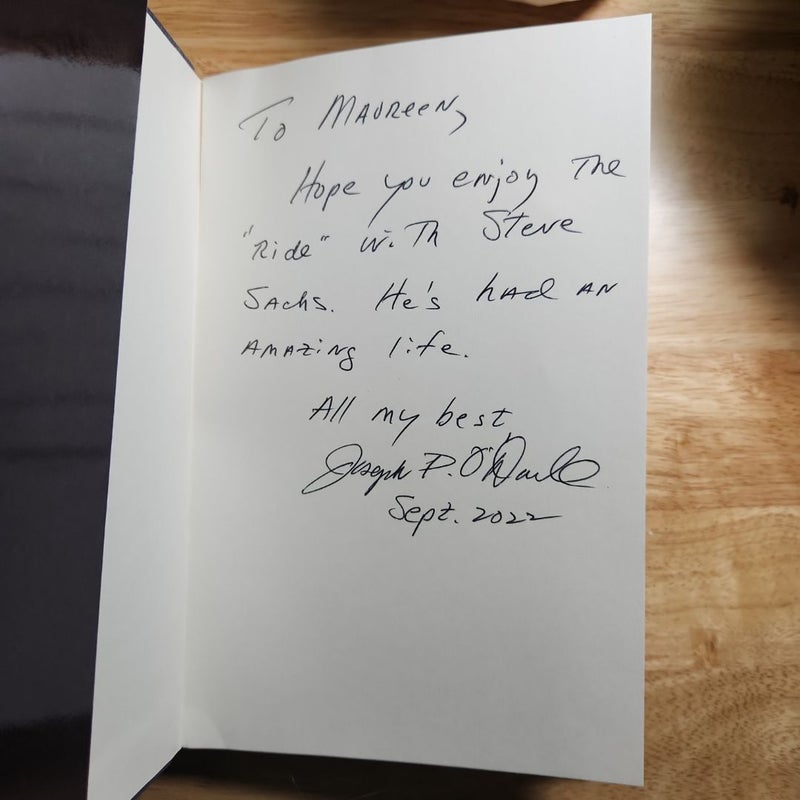 To Maureen,
Hope you enjoy the
"Ride" with Steve
Sachs. He's had an
amazing life.
All my best
Joseph P.
Sept. 2022